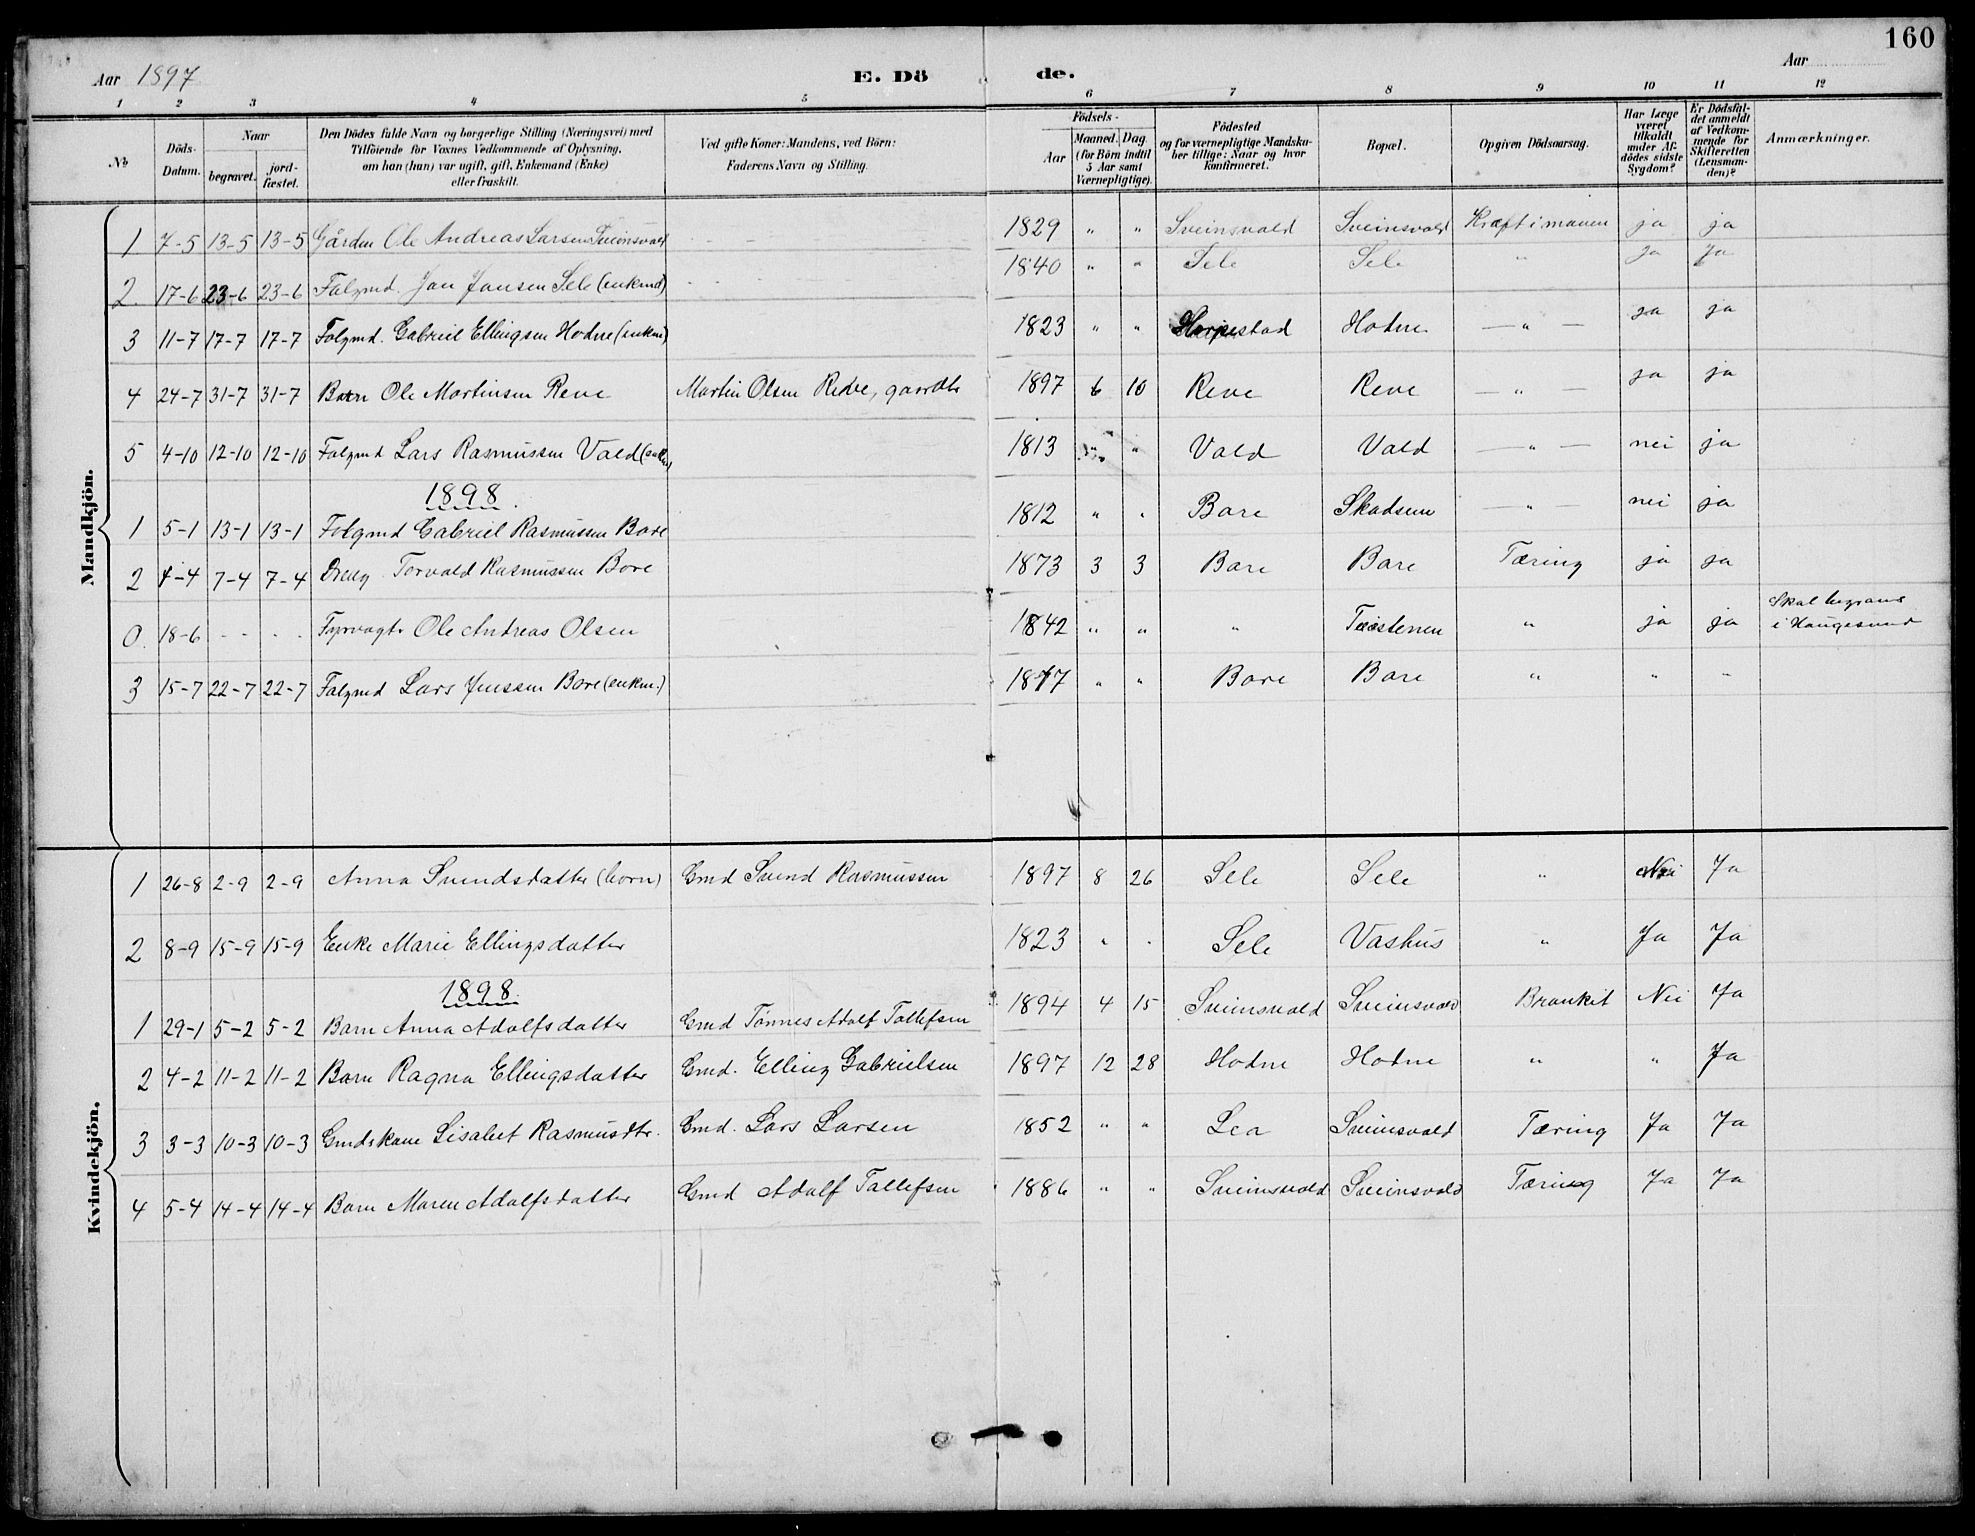 160
Aar 1897 E. Dö de. Aar
1 2 3 4 5 6 7 8 9 10 11 12
№
Döds-Datum.
Naar
begravet.
jord-fæstet.
Den Dödes fulde Navn og borgerlige Stilling (Næringsvei) med
Tilföiende for Voxnes Vedkommende af Oplysning,
om han (hun) var ugift, gift, Enkemand (Enke)
eller fraskilt.
Ved gifte Koner: Mandens, ved Börn:
Faderens Navn og Stilling.
Födsels-
Aar
Maaned. Dag
(for Börn indtil
5 Aar samt
Værnepligtige).
Födested
og for værnepligtige Mandska-
ber tillige: Naar og hvor
konfirmeret.
Bopæl.
Opgiven Dödsaarsag.
Har Læge
været
tilkaldt
under Af-
dödes sidste
Sygdom?
Er Dödsfal-
det anmeldt
af Vedkom-
mende for
Skifteretten
(Lensman-
den)?
Anmærkninger.
Mandkjön.
1 7-5 13-5 13-5 Gården Ole Andreas Larsen Sveinsvold 1829 " " Sveinsvold Sveinsvold Kræft i maven ja ja
2. 17-6 23-6 23-6 Folgmd. Jan Jansen Sele (enkmd) 1840 " " Sele Sele " Ja Ja
3 11-7 17-7 17-7 Folgmd. Gabriel Ellingsen Hodne (enkm) 1823 " " Horpestad Hodne — " — ja ja
4 24-7 31-7 31-7 Barn Ole Martinsen Reve Martin Olsen Redve, gaardbr 1897 6 10 Reve Reve — " — ja ja
5 4-10 12-10 12-10 Folgmd Lars Rasmussen Vold 1813 " " Vold Vold — " — nei ja
1898.
1 5-1 13-1 13-1 Folgmd Gabriel Rasmussen Bore 1812 " " Bore Skadsem — " — nei ja
2 4-4 7-4 7-4 Dreng Torvald Rasmussen Bore 1873 3 3 Bore Bore Tæring ja ja
0. 18-6 - - - - Fyrvogt. Ole Andreas Olsen 1842 " " " Feistenen " ja ja Skal begraves
i Haugesund
3 15-7 22-7 22-7 Folgmd Lars Jenssen Bore (enkm.) 1817 " " Bore Bore " " "
Kvindekjön.
1 26-8 2-9 2-9 Anna Svendsdatter (barn) Gmd Svend Rasmussen 1897 8 26 Sele Sele " Nei Ja
2 8-9 15-9 15-9 Enke Marie Ellingsdatter 1823 " " Sele Vashus " Ja Ja
1898.
1 29-1 5-2 5-2 Barn Anna Adolfsdatter Gmd Tönnes Adolf Tollefsen 1894 4 15 Sveinsvold Sveinsvold Bronkit Nei Ja
2 4-2 11-2 11-2 Barn Ragna Ellingsdatter Gmd. Elling Gabrielsen 1897 12 28 Hodne Hodne " " Ja
3 3-3 10-3 10-3 Gmdskone Lisabet Rasmusdtr. Gmd. Lars Larsen 1852 " " Lea Sveinsvold Tæring Ja Ja
4 5-4 14-4 14-4 Barn Maren Adolfsdatter Gmd Adolf Tollefsen 1886 " " Sveinsvold Sveinsvold Tæring Ja Ja